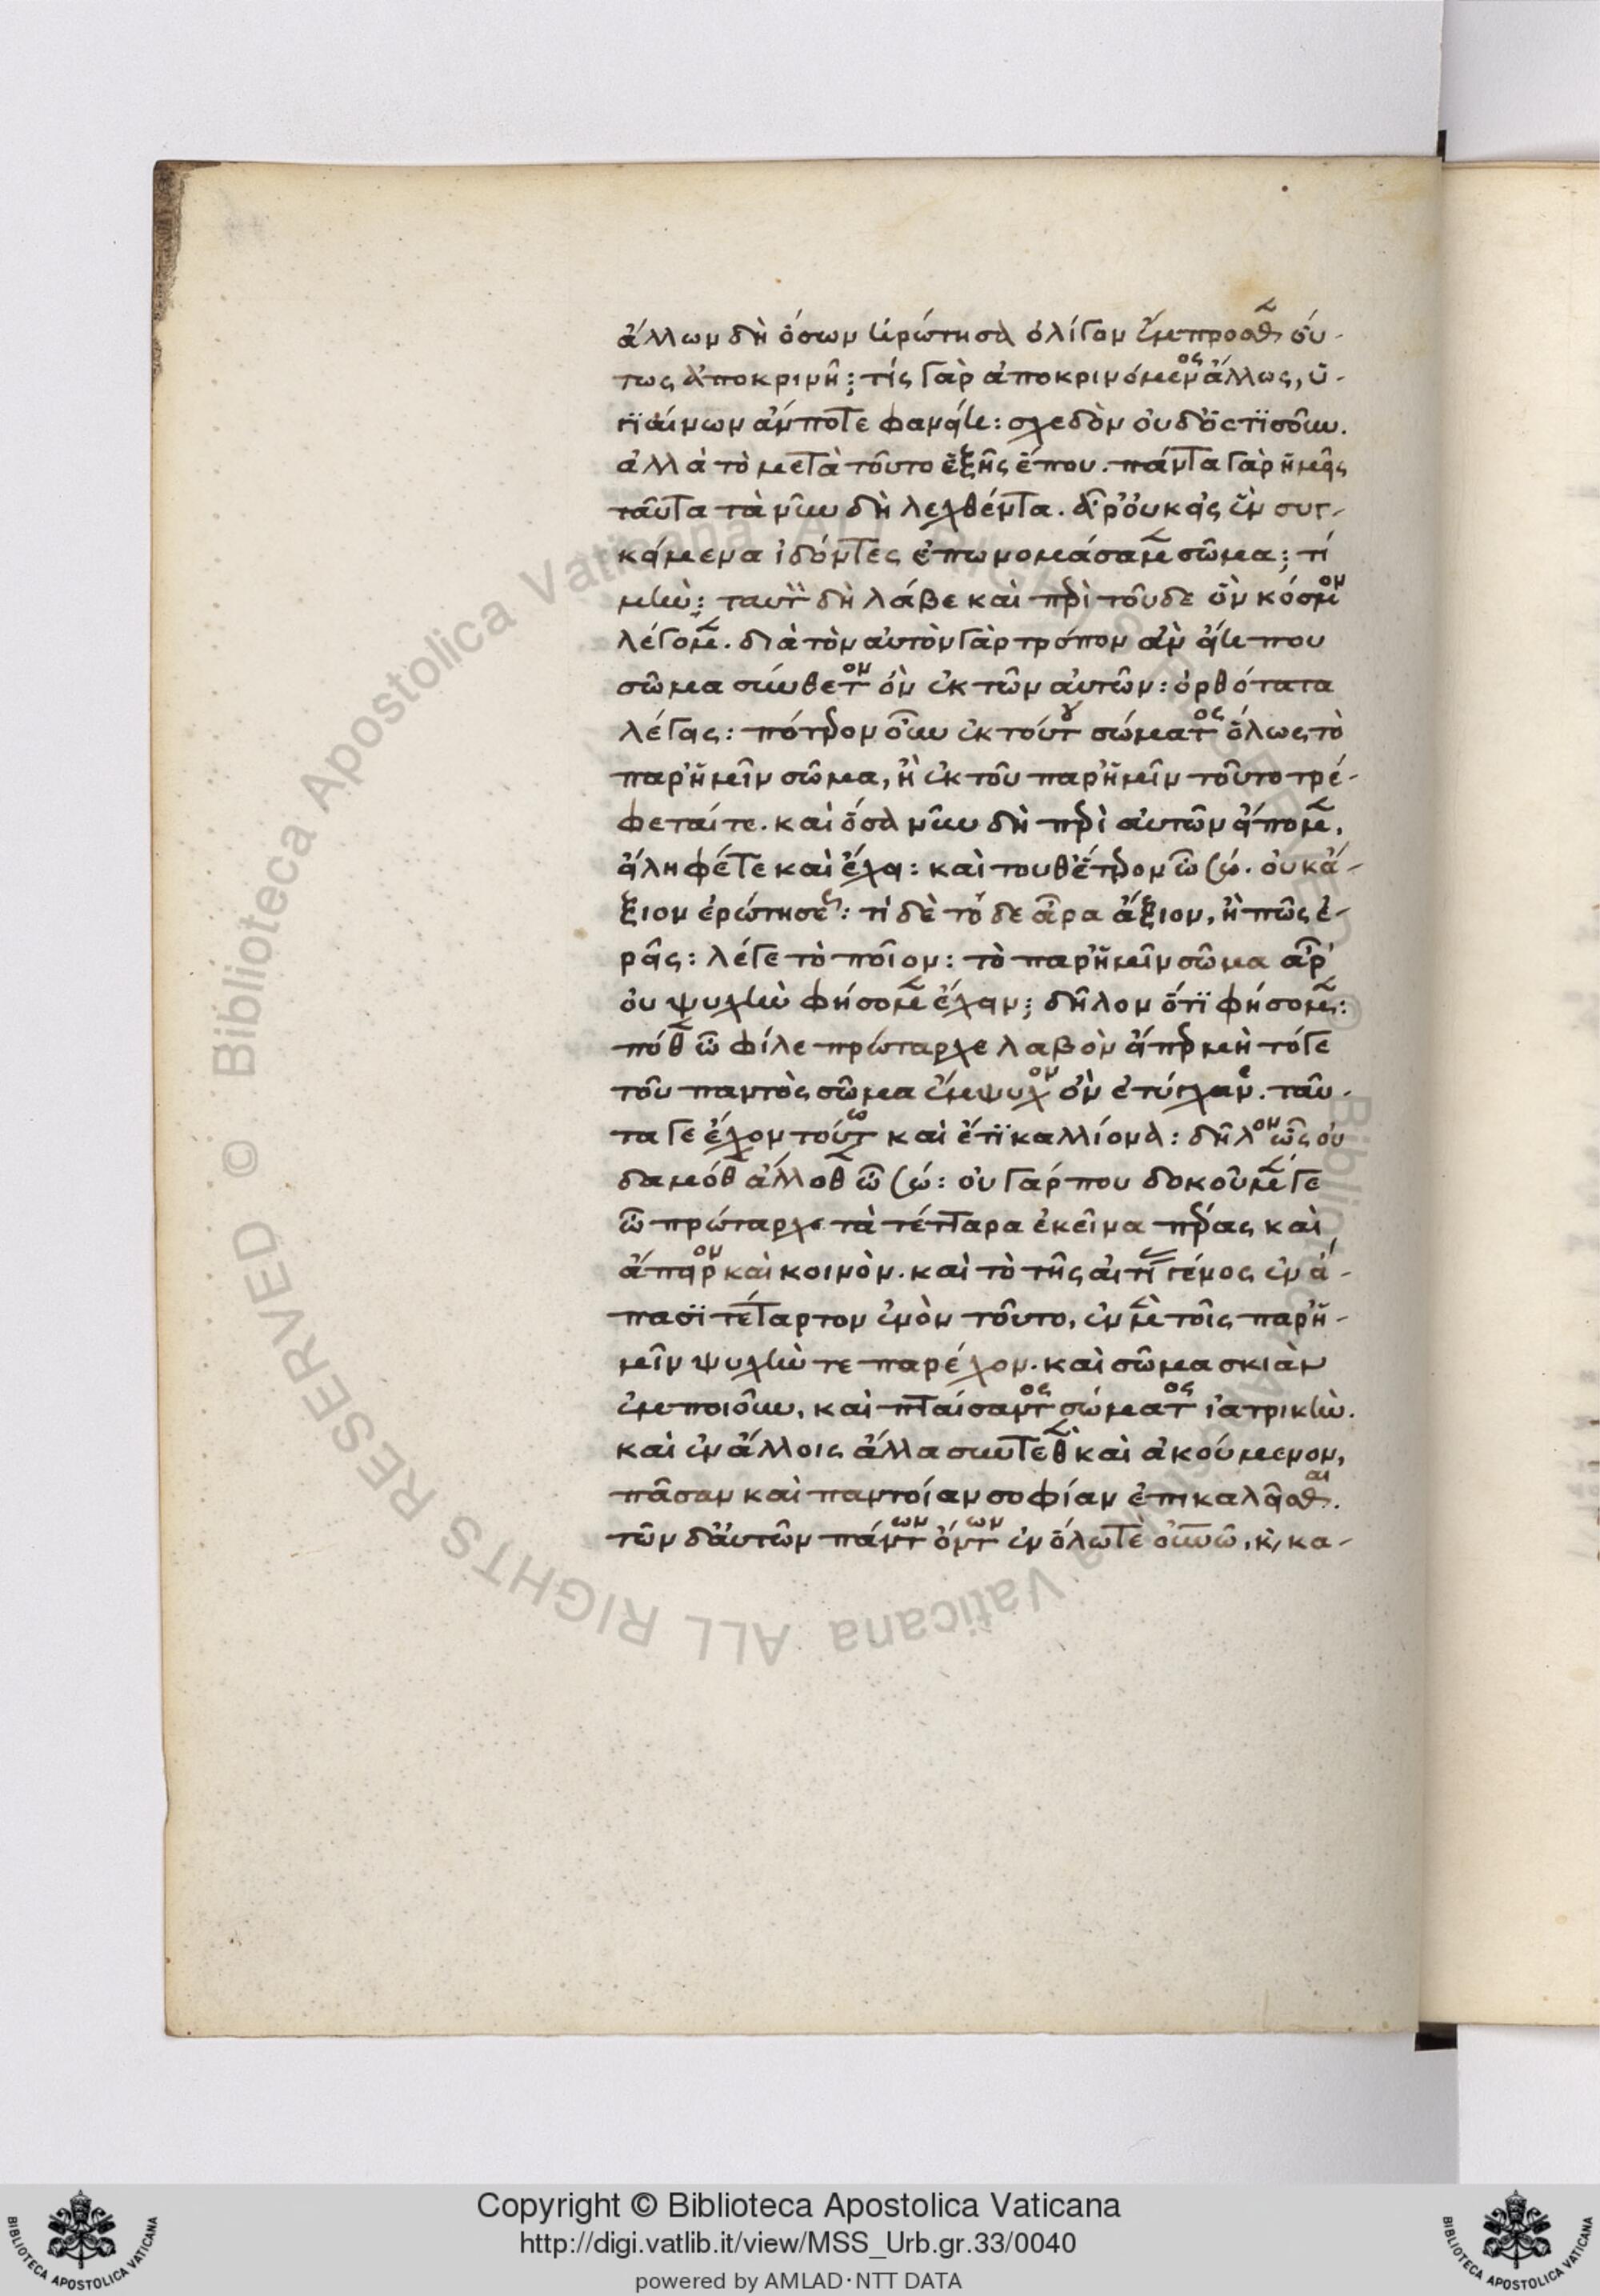 ἄλλων δὴ ὅσων ἠρώτησα ὀλίγον ἔμπροσθεν οὕ-
τως ἀποκρινῇ; τίς γὰρ ἀποκρινόμενος ἄλλως, ὑ-
γιαίνων ἄν ποτε φανείη: σχεδὸν οὐδ' ὅστισοῦν.
ἀλλὰ τὸ μετὰ τοῦτο ἑξῆς ἕπου. πάντα γὰρ ἡμεῖς
ταῦτα τὰ νῦν δὴ λεχθέντα. ἆρ' οὐκ εἰς ἓν συγ-
κείμενα ἰδόντες ἐπωνομάσαμεν σῶμα; τί
μήν: ταυτὸν δὴ λάβε καὶ περὶ τοῦδε ὃν κόσμον
λέγομεν. διὰ τὸν αὐτὸν γὰρ τρόπον ἂν εἴη που
σῶμα σύνθετον ὂν ἐκ τῶν αὐτῶν: ὀρθότατα
λέγεις: πότερον οὖν ἐκ τούτου σώματος ὅλως τὸ
παρ' ἡμῖν σῶμα, ἢ ἐκ τοῦ παρ' ἡμῖν τοῦτο τρέ-
φεταί τε. καὶ ὅσα νῦν δὴ περὶ αὐτῶν εἴπομεν,
εἴληφέ τε καὶ ἔχει: καὶ τοῦθ' ἕτερον ὦ Σώ. οὐκ ἄ-
ξιον ἐρωτήσεως: τί δὲ τόδε ἆρα ἄξιον, ἢ πῶς ἐ-
ρεῖς: λέγε τὸ ποῖον: τὸ παρ' ἡμῖν σῶμα ἆρ'
οὐ ψυχὴν φήσομεν ἔχειν; δῆλον ὅτι φήσομεν:
πόθεν ὦ φίλε πρώταρχε λαβὸν εἴπερ μὴ τό γε
τοῦ παντὸς σῶμα ἔμψυχον ὂν ἐτύγχανε. ταυ-
τά γε ἔχον τούτω καὶ ἔτι καλλίονα: δῆλον ὡς οὐ
δαμόθεν ἄλλοθεν ὦ Σώ: οὐ γάρ που δοκοῦμέν γε
ὦ πρώταρχε τὰ τέτταρα ἐκεῖνα πέρας καὶ
ἄπειρον καὶ κοινὸν. καὶ τὸ τῆς αἰτίας γένος ἐν ἅ-
πασι τέταρτον ἐνὸν τοῦτο, ἐν μὲν τοῖς παρ' ἡ-
μῖν ψυχήν τε παρέχον. καὶ σῶμα σκιὰν
ἐμποιοῦν, καὶ πταίσαντος σώματος ἰατρικὴν.
καὶ ἐν ἄλλοις ἄλλα συντεθὲν καὶ ἀκούμενον,
πᾶσαν καὶ παντοίαν σοφίαν ἐπικαλεῖσθαι.
τῶν δ' αὐτῶν πάντων ὄντων ἐν ὅλω τὲ οὐνῶ, κ, κα-
Copyright © Biblioteca Apostolica Vaticana
http://digi.vatlib.it/view/MSS_Urb.gr.33/0040
powered by AMLAD·NTT DATA
BIBLIOTECA APOSTOLICA VATICANA
BIBLIOTECA APOSTOLICA VATICANA
© Biblioteca Apostolica Vaticana ALL RIGHTS RESERVED © Biblioteca Apostolica Vaticana ALL RIGHTS RESERVED